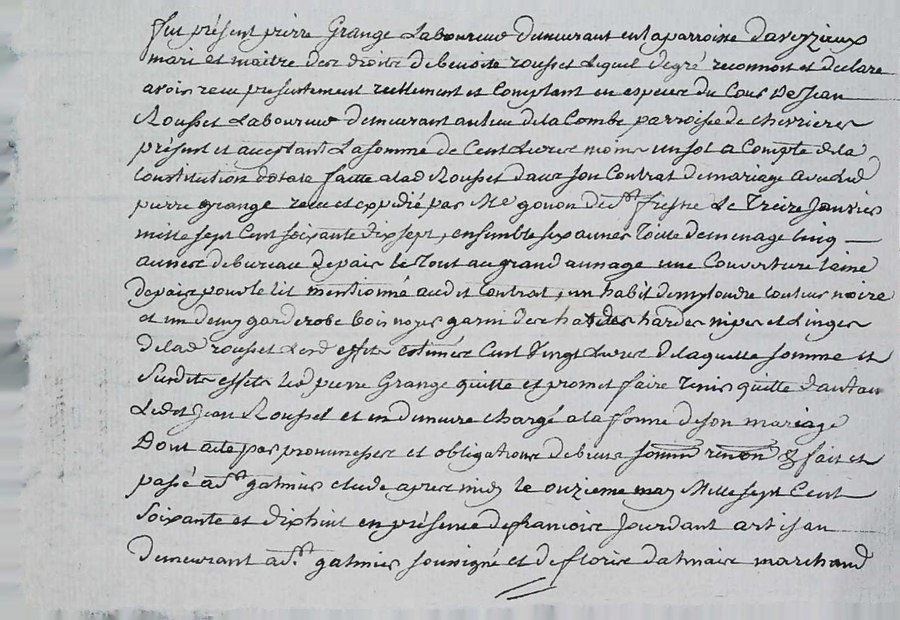 fut présent pierre Grange Laboureur demeurant en la parroisse daveyzieux
mari et maitre des droits de benoite rousset lequel degré reconnoit et declare
avoir recu presentement reellement et Comptant en especes du Cours de Jean
Rousset Laboureur demeurant au lieu de la Combe parroisse de chevrieres
présent et acceptant La somme de Cent Livres moins un sol a Compte de la
Constitution dotale faitte a lad Rousset dans son Contrat de mariage avec led
pierre grange receu et expedié par Me gonon de St fresne Le Treize Janvier
mille sept Cent soixante dix sept, ensemble six aunes Toile de menage Cinq
aunes de bureau de pais le Tout au grand aunage une Couverture laine
de pais pour le lit mentionné audit Contrat, un habit demy londre couleur noire
et un demy garderobe bois noyer garni des hardes nipes et Linges
de lad rousset Lesd effets estimés Cent Vingt Livres de laquelle somme et
Susdits effets led pierre Grange quitte et promet faire Tenir quitte d'autan
Ledit Jean Rousset et en demeure Chargé a la forme de son mariage
Dont acte par promesses et obligations de biens somm renon & fait et
passé a St galmier etude apres midy le onzieme may Mille sept Cent
Soixante et dixhuit en présence de francois Jourdant artisan
demeurant a St galmier soussigné et de floris dalmais marchand